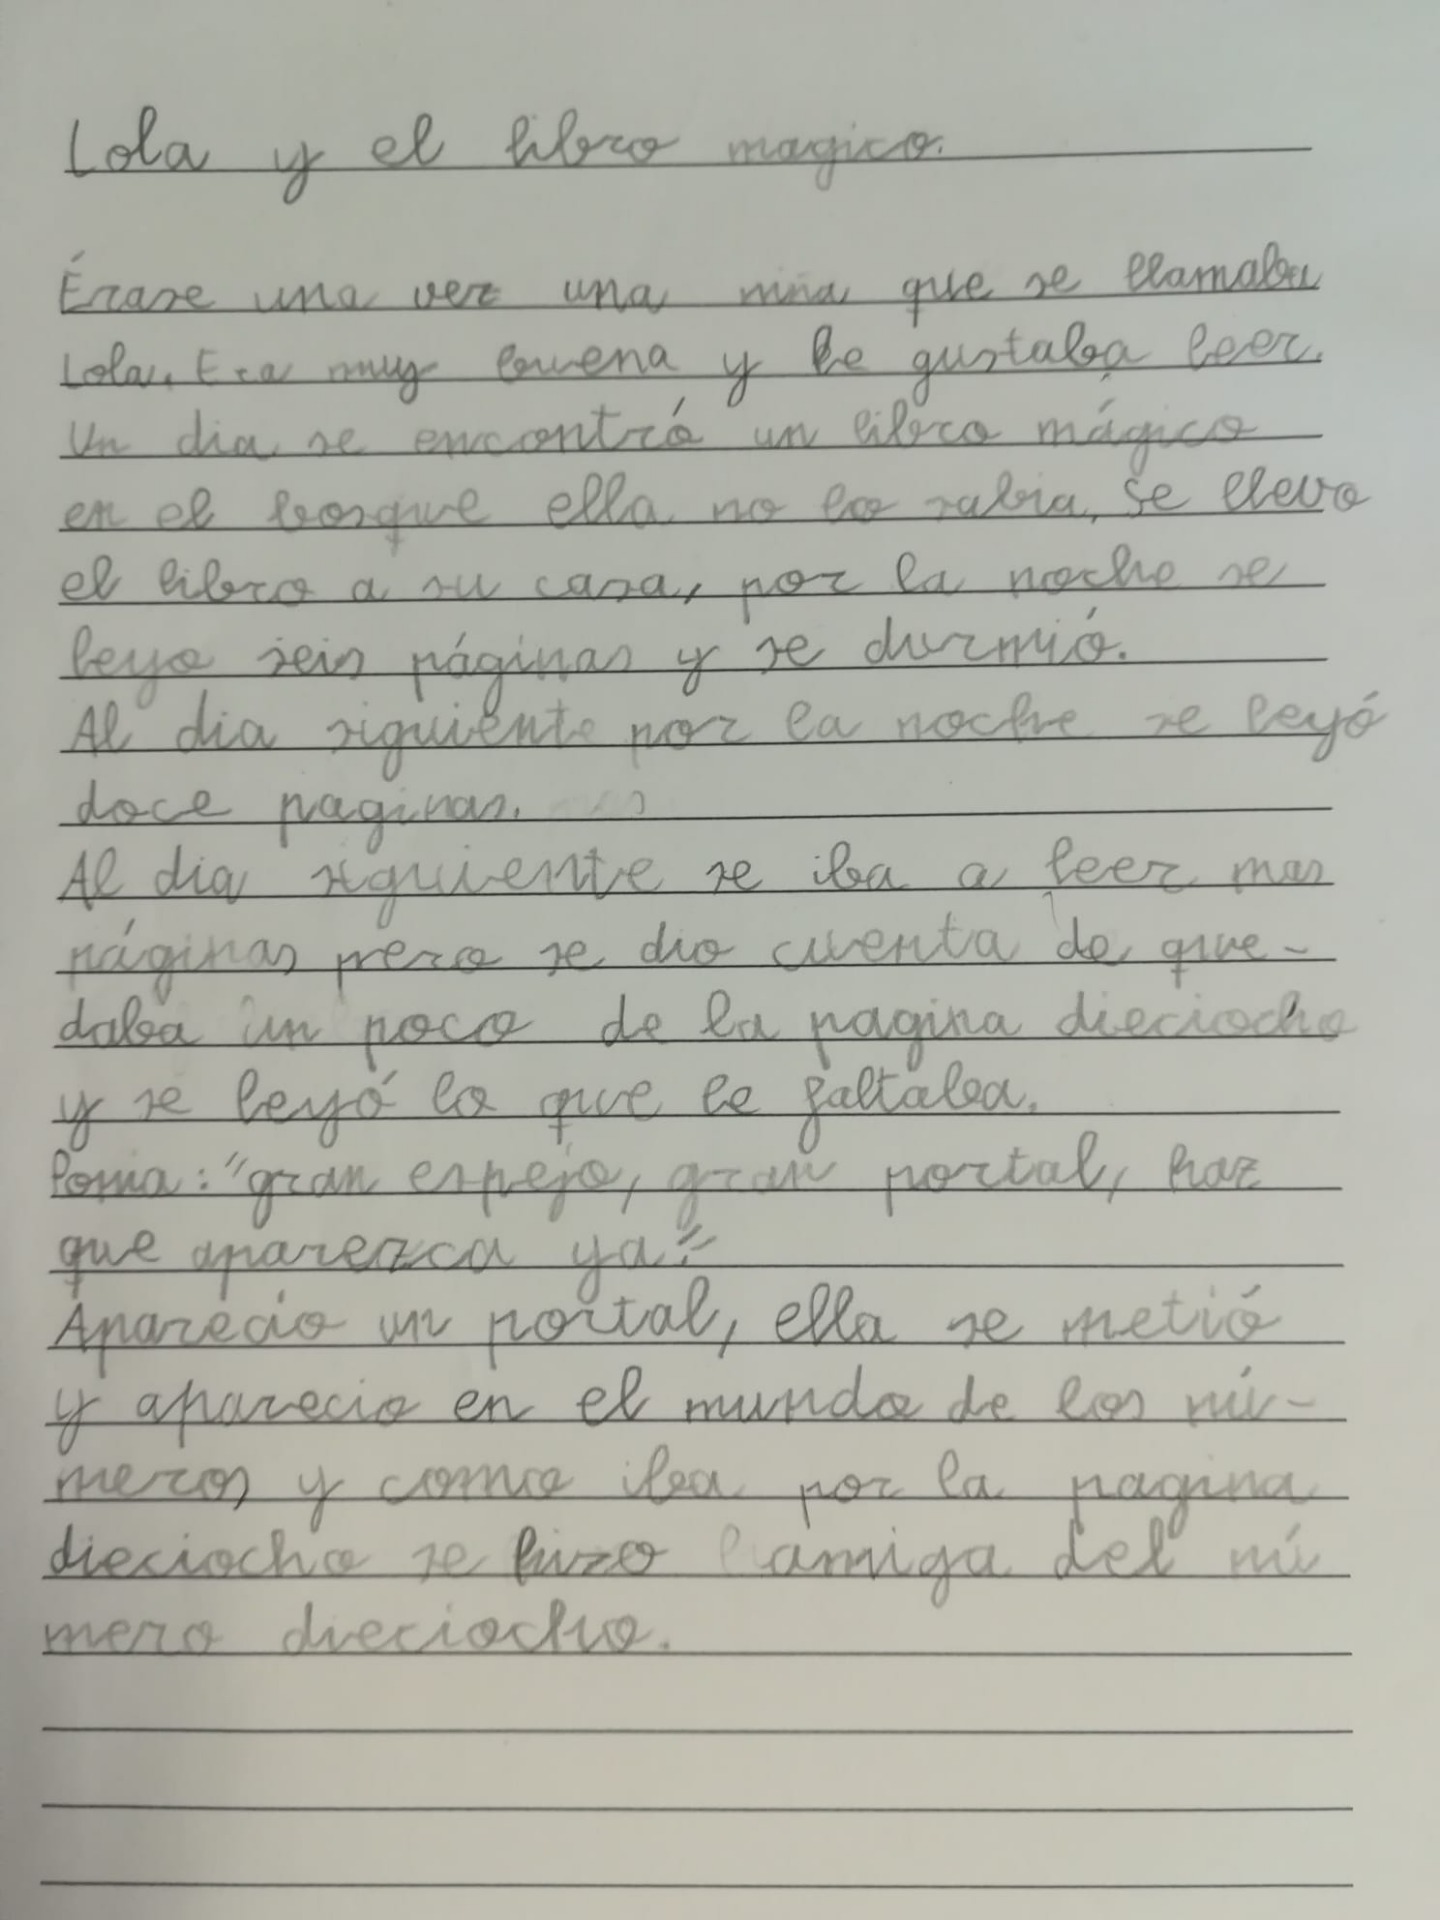 Lola y el libro magico.
Érase una vez una niña que se llamaba
Lola. Era muy buena y le gustaba leer.
Un dia se encontró un libro mágico
en el bosque ella no lo sabia, se llevo
el libro a su casa, por la noche se
leyo seis páginas y se durmió.
Al dia siguiente por la noche se leyó
doce paginas.
Al dia siguiente se iba a leer mas
páginas pero se dio cuenta de que-
daba un poco de la pagina dieciocho
y se leyó lo que le faltaba.
Ponia: "gran espejo, gran portal, haz
que aparezca ya!"
Aparecio un portal, ella se metió
y aparecio en el mundo de los nú-
meros y como iba por la pagina
dieciocho se hizo amiga del nú
mero dieciocho.